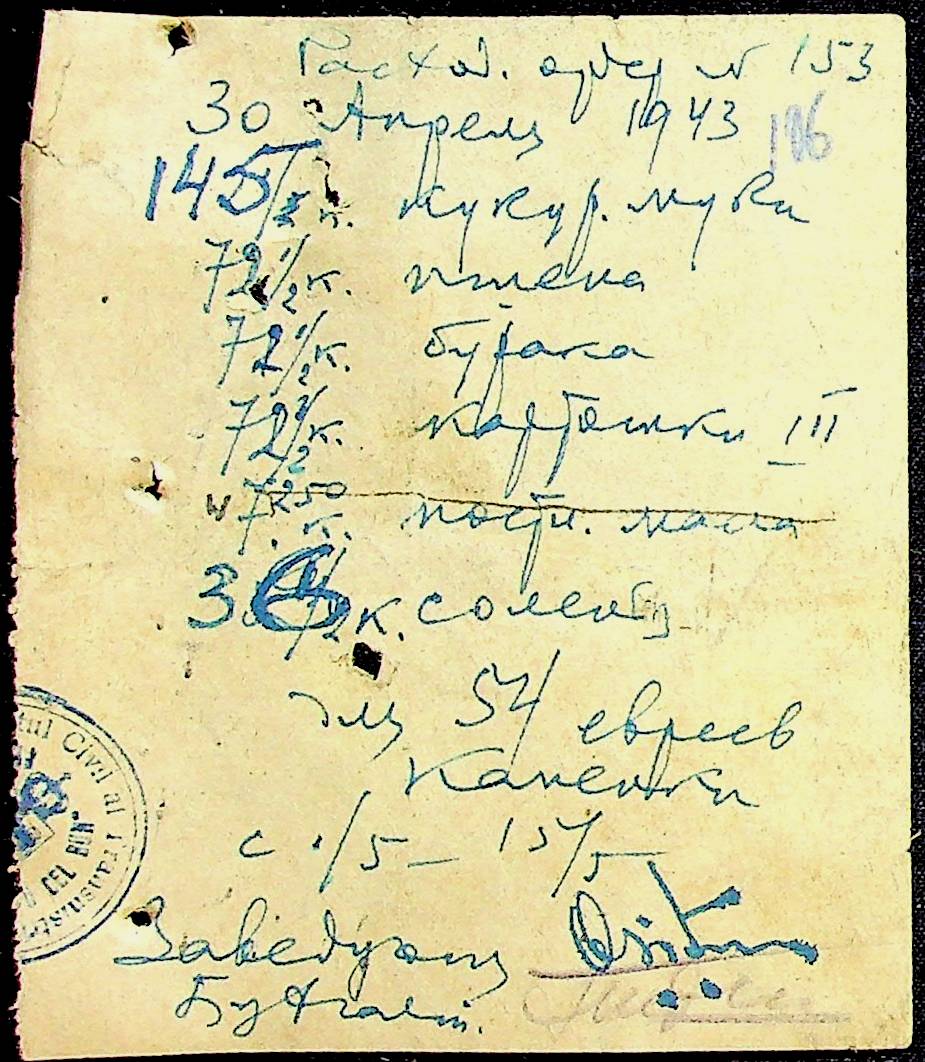 Расход. ордер № 153
30 Апреля 1943
116
145 к. кукур. муки
72 1/2 к. пшена
72 1/2 к. бурака
72 1/2 к. картошки III
7.250 к. постн. масла
36 1/2 к. соленья
для 54 евреев
Каменки
с 1/5 – 15/5
Заведующ
Бухгалт.
Civil al Transnistr
CEL BUN"